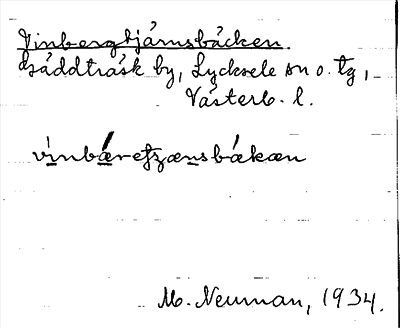 Vinbergtjärnsbäcken.
Gäddträsk by, Lycksele sn o. tg,
Västerb. l.
vinbæretʒænsbækæn
M. Neuman, 1934.